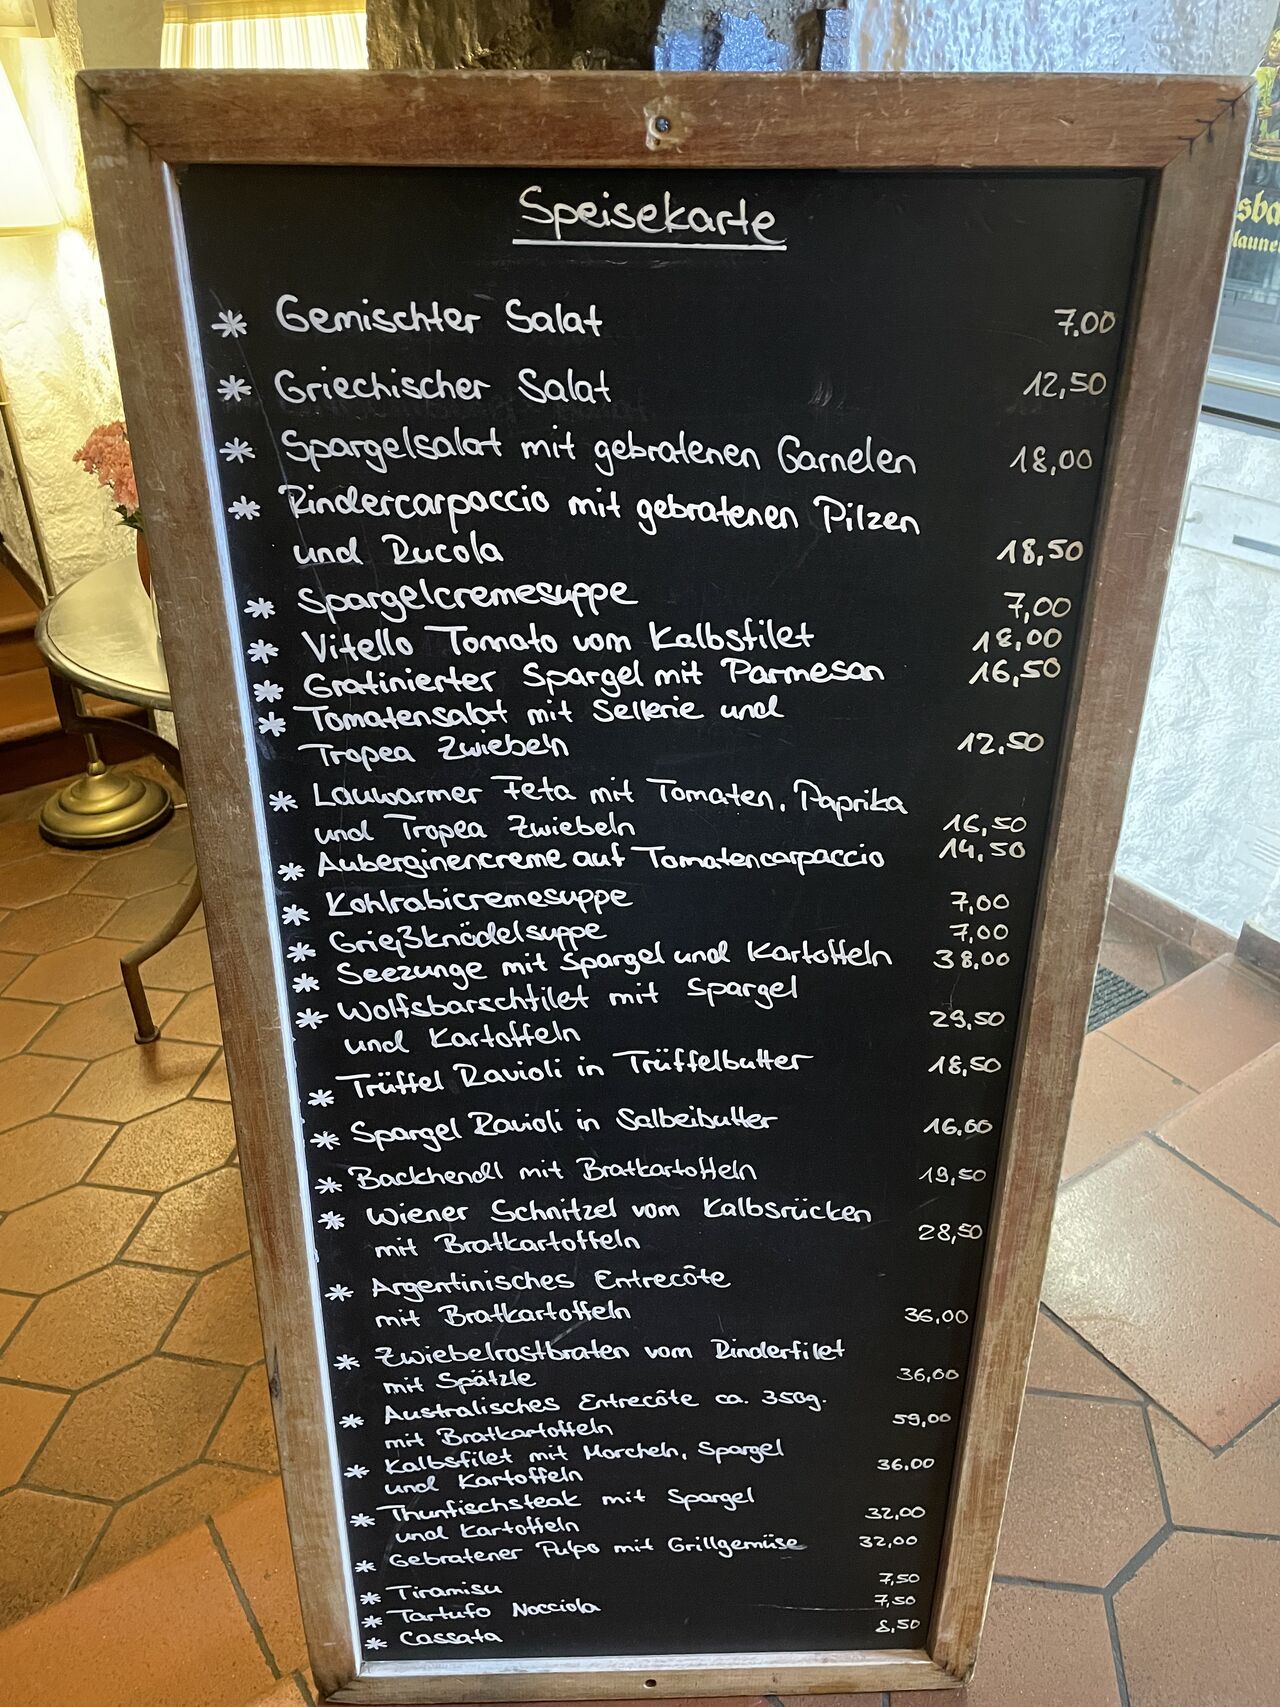 Speisekarte
* Gemischter Salat 7.00
* Griechischer Salat 12,50
* Spargelsalat mit gebratenen Garnelen 18,00
* Rindercarpaccio mit gebratenen Pilzen
und Rucola 18,50
* Spargelcremesuppe 7,00
* Vitello Tomato vom Kalbsfilet 18.00
* Gratinierter Spargel mit Parmesan 16,50
* Tomatensalat mit Sellerie und
Tropea Zwiebeln 12,50
* Lauwarmer Feta mit Tomaten, Paprika
und Tropea Zwiebeln 16,50
* Auberginencreme auf Tomatencarpaccio 14,50
* Kohlrabicremesuppe 7,00
* Grießknödelsuppe 7,00
* Seezunge mit Spargel und Kartoffeln 38,00
* Wolfsbarschfilet mit Spargel
und Kartoffeln 29,50
* Trüffel Ravioli in Trüffelbutter 18,50
* Spargel Ravioli in Salbeibutter 16,00
* Backhendl mit Bratkartoffeln 19,50
* Wiener Schnitzel vom Kalbsrücken
mit Bratkartoffeln 28,50
* Argentinisches Entrecôte
mit Bratkartoffeln 36,00
* Zwiebelrostbraten vom Rinderfilet
mit Spätzle 36,00
* Australisches Entrecôte ca. 350g.
mit Bratkartoffeln 59,00
* Kalbsfilet mit Morcheln, Spargel
und Kartoffeln 36,00
* Thunfischsteak mit Spargel
und Kartoffeln 32,00
* Gebratener Pulpo mit Grillgemüse 32,00
* Tiramisu 7,50
* Tartufo Nocciola 7,50
* Cassata 8,50